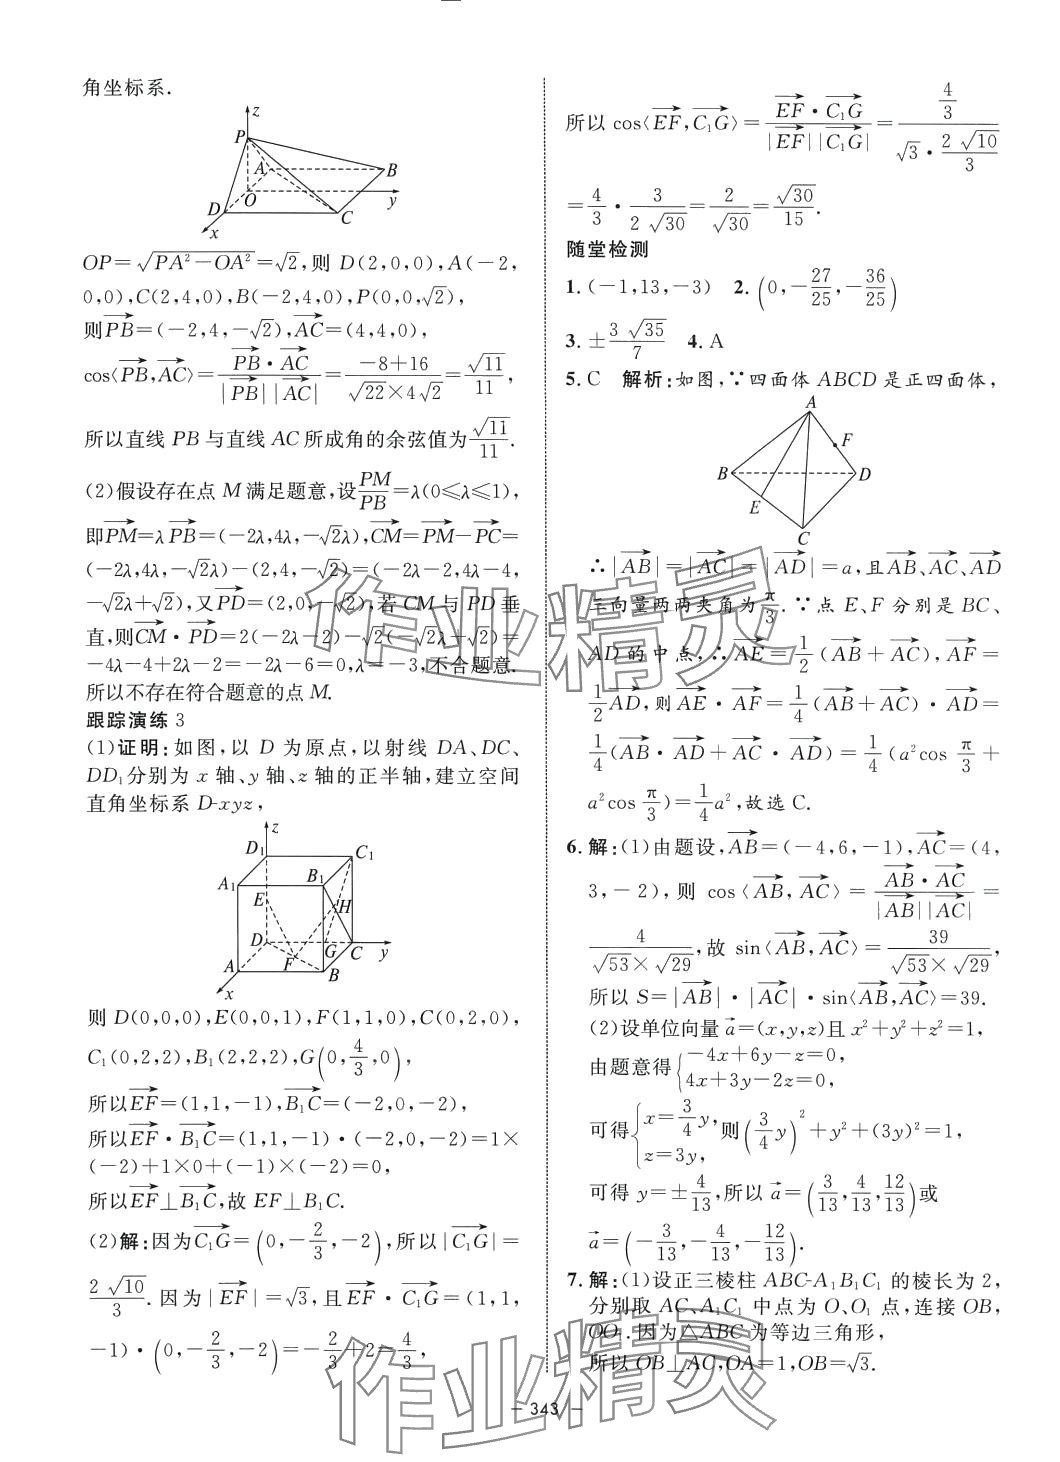 角坐标系.
z
P
A
B
O
y
D
C
x
OP=√(PA²-OA²)=√2,则 D(2,0,0),A(-2,
0,0),C(2,4,0),B(-2,4,0),P(0,0,√2),
则PB→=(-2,4,-√2),AC→=(4,4,0),
cos⟨PB→,AC→⟩=(PB→·AC→)/(|PB→||AC→|)=(-8+16)/(√22×4√2)=√11/11,
所以直线 PB 与直线 AC 所成角的余弦值为√11/11.
(2)假设存在点 M 满足题意,设PM/PB=λ(0≤λ≤1),
即PM→=λPB→=(-2λ,4λ,-√2λ),CM→=PM→-PC→=
(-2λ,4λ,-√2λ)-(2,4,-√2)=(-2λ-2,4λ-4,
-√2λ+√2),又PD→=(2,0,-√2),若 CM 与 PD 垂
直,则CM→·PD→=2(-2λ-2)-√2(-√2λ+√2)=
-4λ-4+2λ-2=-2λ-6=0,λ=-3,不合题意.
所以不存在符合题意的点 M.
跟踪演练 3
(1)证明:如图,以 D 为原点,以射线 DA、DC、
DD₁分别为 x 轴、y 轴、z 轴的正半轴,建立空间
直角坐标系 D-xyz,
z
D₁
C₁
A₁
B₁
E
H
D
G
C
y
F
A
B
x
则 D(0,0,0),E(0,0,1),F(1,1,0),C(0,2,0),
C₁(0,2,2),B₁(2,2,2),G(0,4/3,0),
所以EF→=(1,1,-1),B₁C→=(-2,0,-2),
所以EF→·B₁C→=(1,1,-1)·(-2,0,-2)=1×
(-2)+1×0+(-1)×(-2)=0,
所以EF→⊥B₁C→,故 EF⊥B₁C.
(2)解:因为C₁G→=(0,-2/3,-2),所以|C₁G→|=
2√10/3.因为|EF→|=√3,且EF→·C₁G→=(1,1,
-1)·(0,-2/3,-2)=-2/3+2=4/3,
所以 cos⟨EF→,C₁G→⟩=(EF→·C₁G→)/(|EF→||C₁G→|)=(4/3)/(√3·2√10/3)
=4/3·3/(2√30)=2/√30=√30/15.
随堂检测
1.(-1,13,-3) 2.(0,-27/25,-36/25)
3.±3√35/7 4.A
5.C 解析:如图,∵四面体 ABCD 是正四面体,
A
F
B
D
E
C
∴|AB→|=|AC→|=|AD→|=a,且AB→、AC→、AD→
三向量两两夹角为π/3.∵点 E、F 分别是 BC、
AD 的中点,∴AE→=1/2(AB→+AC→),AF→=
1/2AD→,则AE→·AF→=1/4(AB→+AC→)·AD→=
1/4(AB→·AD→+AC→·AD→)=1/4(a²cos π/3+
a²cos π/3)=1/4a²,故选 C.
6.解:(1)由题设,AB→=(-4,6,-1),AC→=(4,
3,-2),则 cos⟨AB→,AC→⟩=(AB→·AC→)/(|AB→||AC→|)=
4/(√53×√29),故 sin⟨AB→,AC→⟩=39/(√53×√29),
所以 S=|AB→|·|AC→|·sin⟨AB→,AC→⟩=39.
(2)设单位向量 a→=(x,y,z)且 x²+y²+z²=1,
由题意得{-4x+6y-z=0,
4x+3y-2z=0,
可得{x=3/4y,
z=3y,
则(3/4y)²+y²+(3y)²=1,
可得 y=±4/13,所以 a→=(3/13,4/13,12/13)或
a→=(-3/13,-4/13,-12/13).
7.解:(1)设正三棱柱 ABC-A₁B₁C₁ 的棱长为 2,
分别取 AC、A₁C₁ 中点为 O、O₁ 点,连接 OB,
OO₁.因为△ABC 为等边三角形,
所以 OB⊥AC,OA=1,OB=√3.
作业精灵
作业精灵
- 343 -